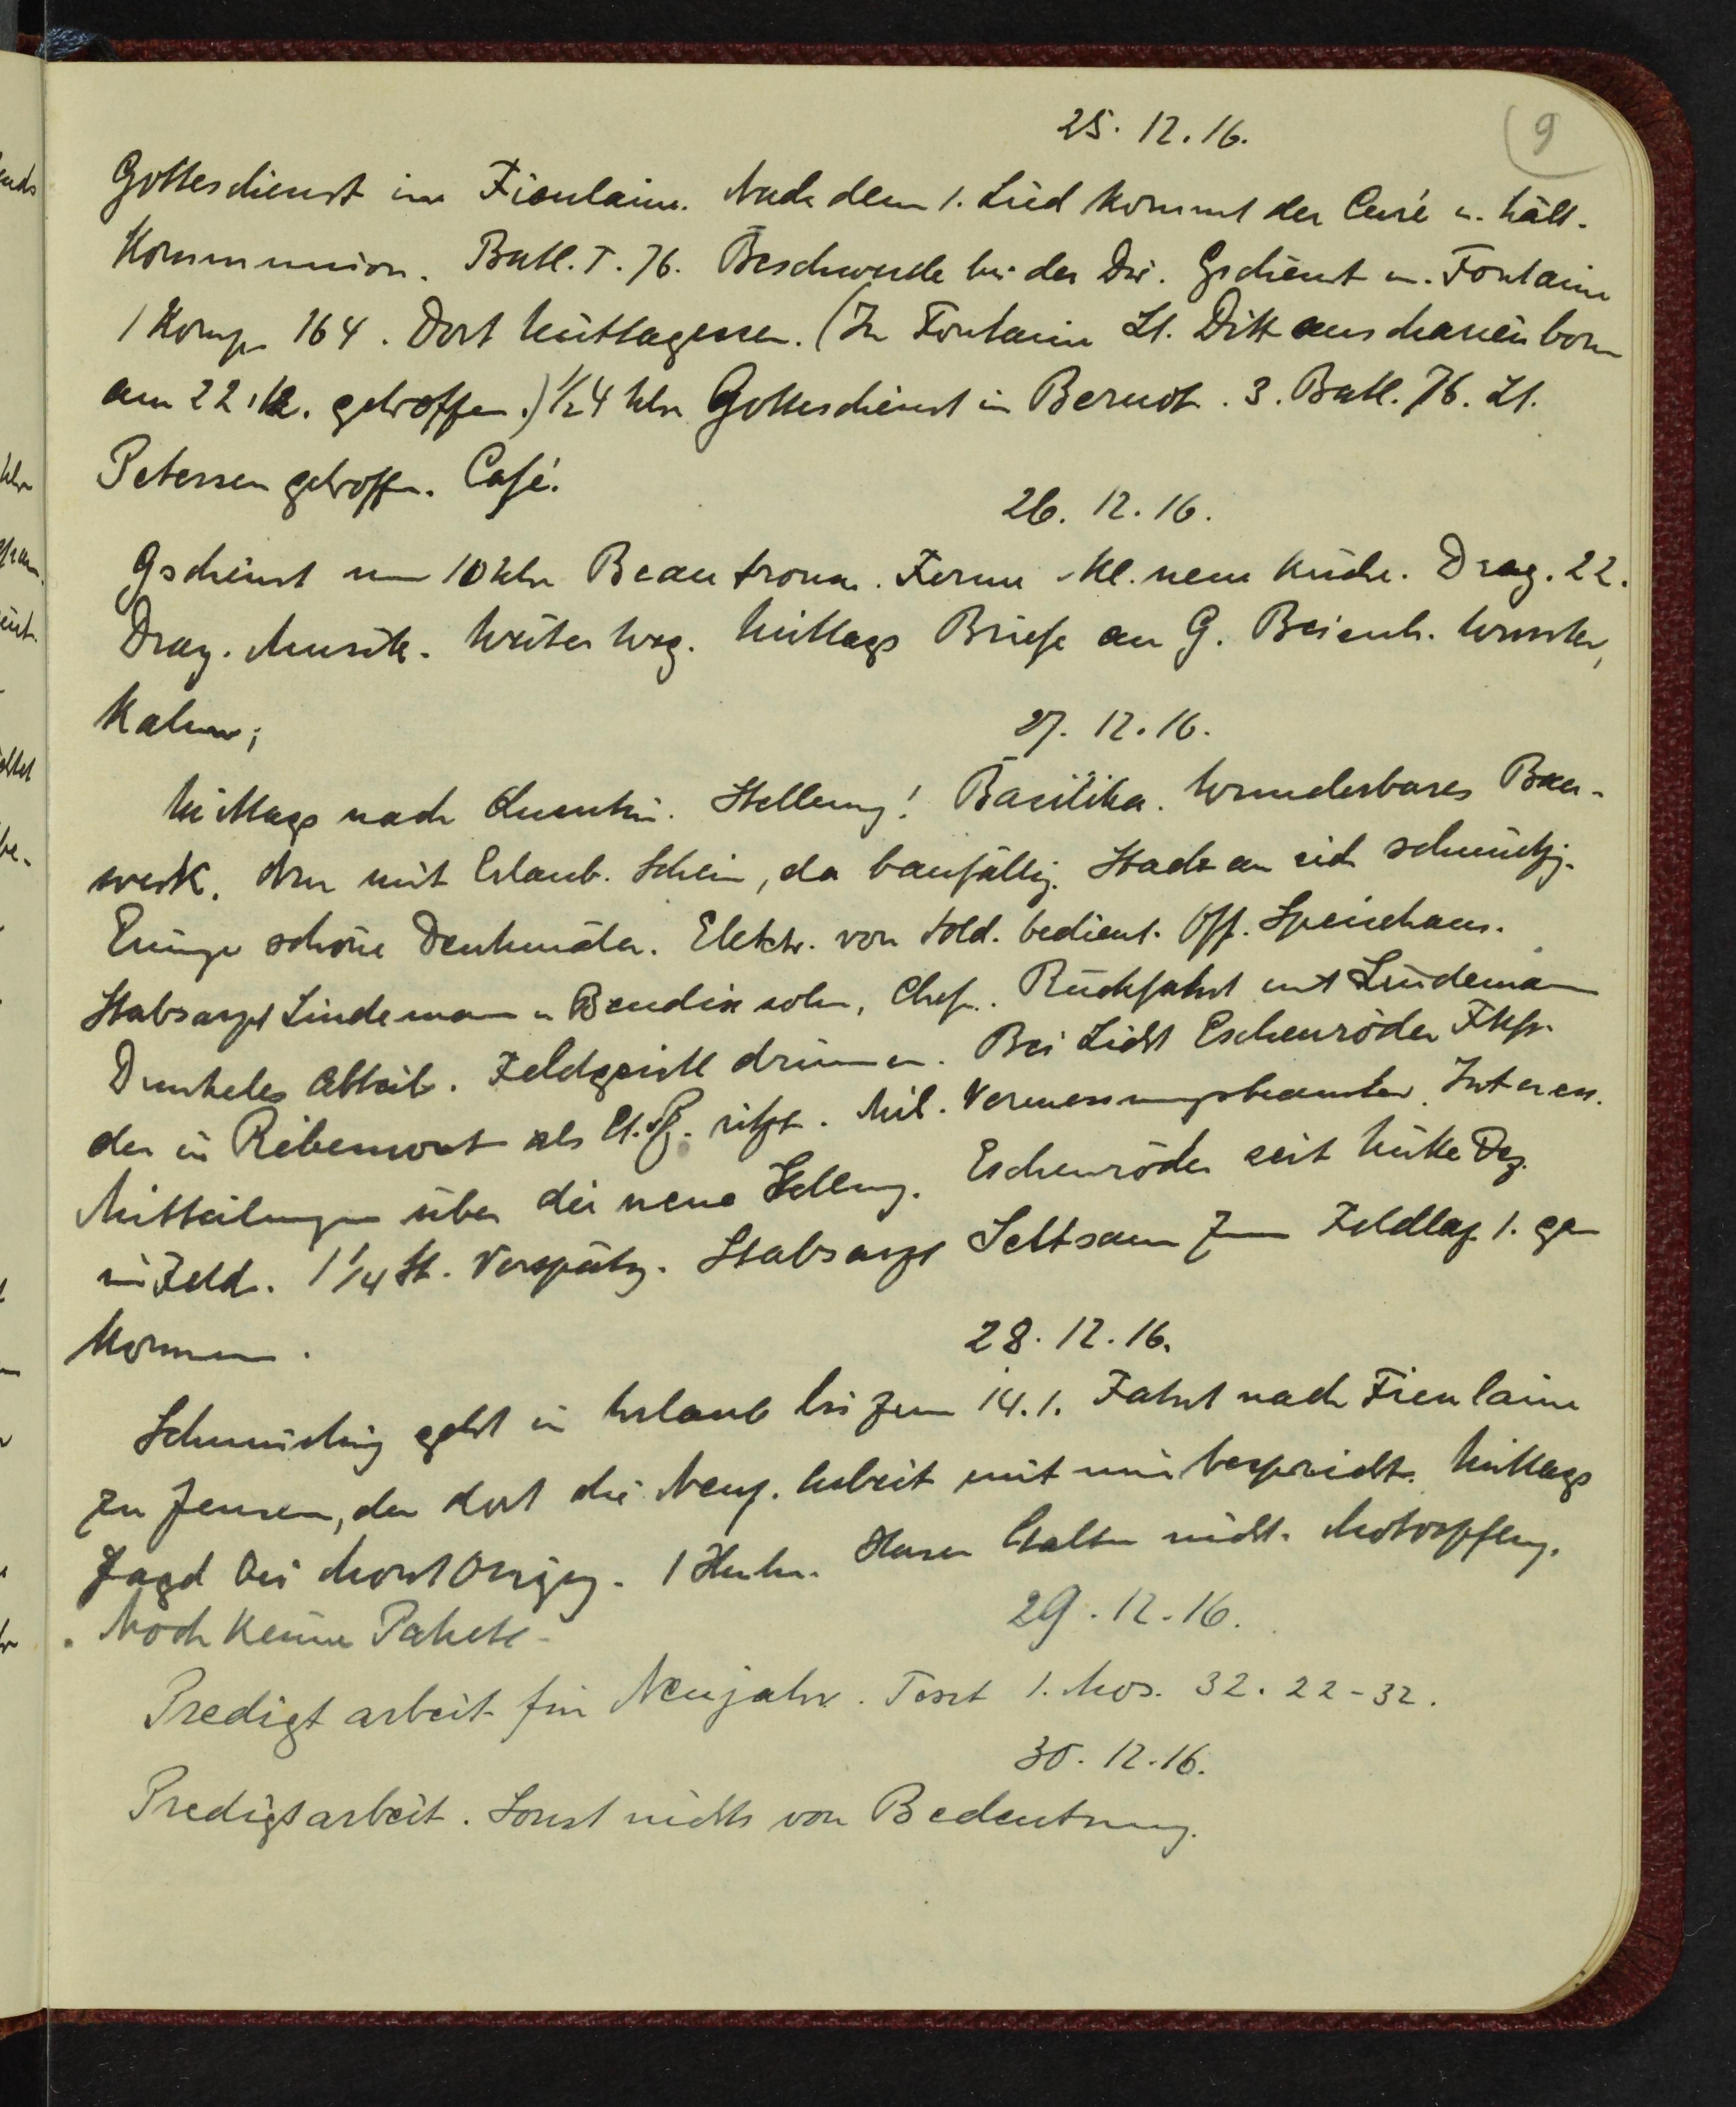 9
25. 12. 16.
Gottesdienst in Fieulaine. Nach dem 1. Lied kommt der Curé u. hält.
Kommunion. Batl. I. 76. Beschwerde bei der Div. Gsdienst in Fontaine
1 Komp. 164. Dort Mittagessen. (In Fontaine Lt. Ditt aus Marienborn
am 22.12. getroffen.) 1/24 Uhr Gottesdienst in Bernot. 3. Batl. 76. Lt.
Petersen getroffen. Café.
26. 12. 16.
Gsdienst um 10 Uhr Beautroux. Ferme kl. neue Küche. Drag. 22.
Drag. Musik. Weiter Weg. Mittags Briefe an G. Beienb.
27. 12. 16.
Mittags nach Quentin. Stellung! Basilika. Wunderbares Bau-
werk. Nur mit Erlaub. Schein, da baufällig. Stadt an sich schmutzig.
Einige schöne Denkmäler. Elektr. von Sold. bedient. Off. Speisehaus.
Stabsarzt Lindemann u Bendixsohn, Chef. Rückfahrt mit Lindemann
Dunkeles Abteil. Feldgeistl drinnen. Bei Licht Eschenröder
der in Ribemont als sitzt. Mil. Vermessungsbeamter. Interess.
Mitteilungen über die neue Stellung. Eschenröder seit Mitte Dez.
im Feld. 1 1/4 St. Verspätg. Stabsarzt Seltsam zum Feldlaz. 1. ge
kommen.
28. 12. 16.
Schmüching geht in Urlaub bis zum 14.1. Fahrt nach Fieulaine
zu Jensen, der dort die Neuj. Arbeit mit mir bespricht. Mittags
Jagd bei Mont Origny. 1 Huhn. Hasen halten nicht. Motorpflug.
Noch keine Pakete.
29. 12. 16.
Predigt arbeit für Neujahr. Text 1. Mos. 32. 22-32.
30. 12. 16.
Predigtarbeit. Sonst nichts von Bedeutung.